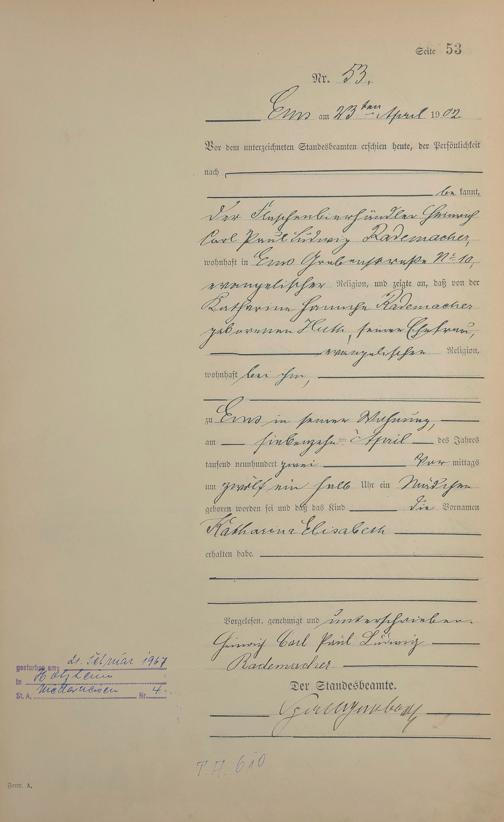 Seite 53
Nr. 53.
Ems am 23ten April 1902
Vor dem unterzeichneten Standesbeamten erschien heute, der Persönlichkeit
nach
be kannt,
der Flaschenbierhändler Heinrich
Carl Paul Ludwig Rademacher,
wohnhaft in Ems Grabenstraße No 10,
evangelischer Religion, und zeigte an, daß von der
Katharine Rademacher
geborenen Huth, seiner Ehefrau,
evangelischer Religion,
wohnhaft bei ihm,
zu Ems in seiner Wohnung,
am siebenzehnten April des Jahres
tausend neunhundert zwei Vor mittags
um zwölf ein halb Uhr ein Mädchen
geboren worden sei und daß das Kind die Vornamen
Katharina Elisabeth
erhalten habe.
Vorgelesen, genehmigt und unterschrieben.
Heinrich Carl Paul Ludwig
Rademacher
Der Standesbeamte.
gestorben am: 21. Februar 1967
in
St. A. Nr. 4.
Form. A.